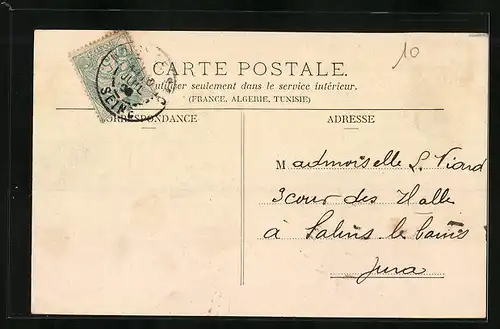 10
CARTE POSTALE.
utiliser seulement dans le service intérieur.
(FRANCE, ALGERIE, TUNISIE)
RRESPONDANCE
ADRESSE
Madmoiselle L. Viard
3 cour des Halle
à Salins le bains
Jura
SEINE